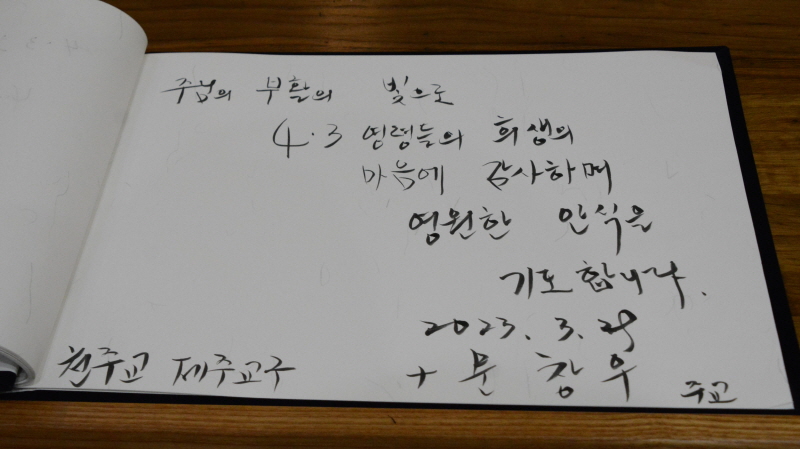 주님의 부활의 빛으로
4·3 영령들의 희생의
마음에 감사하며
영원한 안식을
기도합니다.
2023. 3. 29
천주교 제주교구 + 문창우 주교